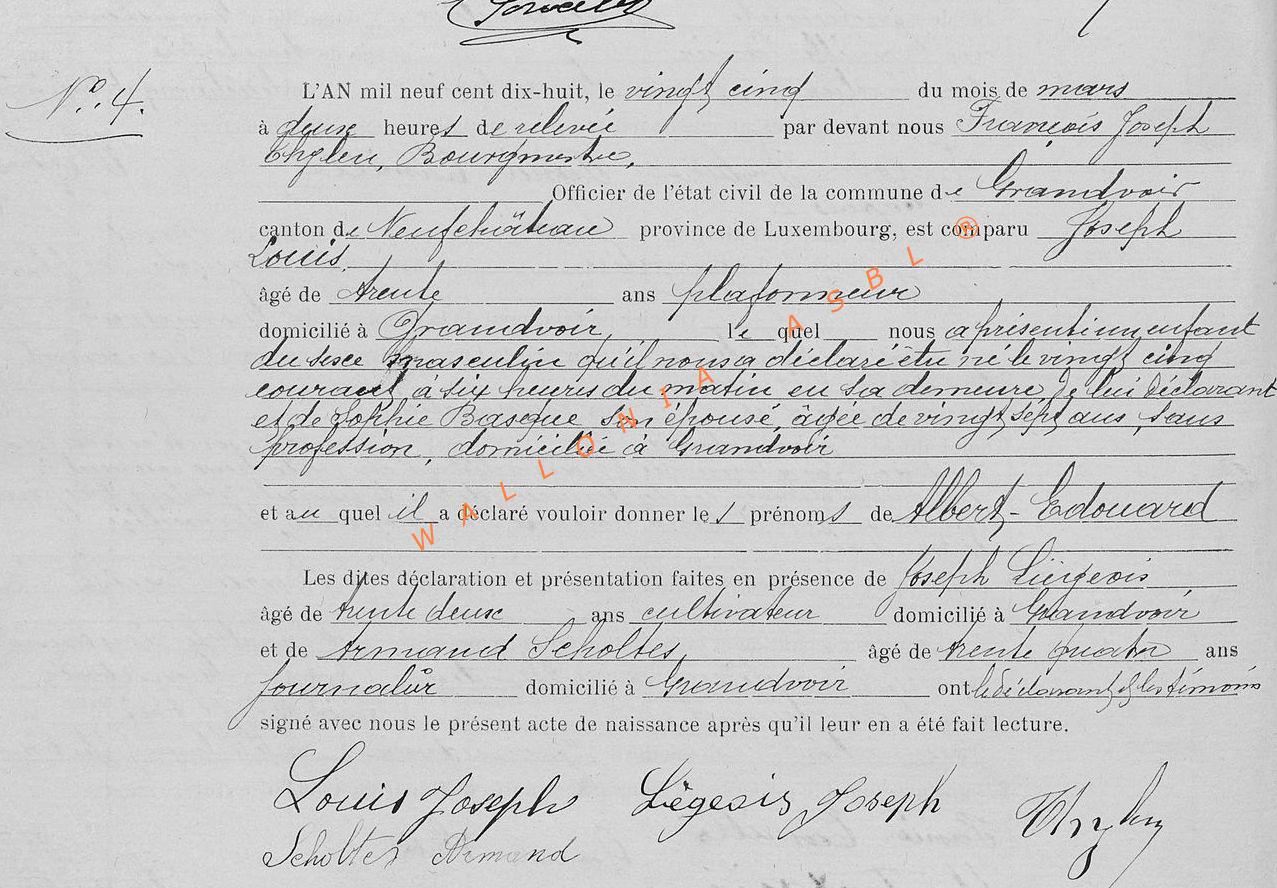 No. 4.
L'AN mil neuf cent dix-huit, le vingt cinq du mois de mars
à deux heures de relevée par devant nous François Joseph
Bourgmestre,
Officier de l'état civil de la commune de Grandvoir
canton de Neufchâteau province de Luxembourg, est comparu Joseph
Louis,
âgé de trente ans plafonneur
domicilié à Grandvoir, le quel nous a présenté un enfant
du sexe masculin qu'il nous a déclaré être né le vingt cinq
courant à six heures du matin en sa demeure, de lui déclarant
et de Sophie Basque son épouse, âgée de vingt sept ans, sans
profession, domiciliée à Grandvoir
et au quel il a déclaré vouloir donner les prénoms de Albert-Edouard
Les dites déclaration et présentation faites en présence de Joseph Liégeois
âgé de trente deux ans cultivateur domicilié à Grandvoir
et de Armand Scholtes, âgé de trente quatre ans
journalier domicilié à Grandvoir ont le déclarant et les témoins
signé avec nous le présent acte de naissance après qu'il leur en a été fait lecture.
Louis Joseph Liégeois Joseph
Scholtes Armand
WALLONIA ASBL ®